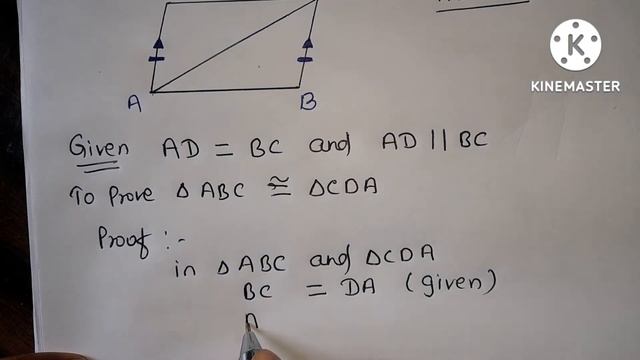 K
KINEMASTER
A
B
Given AD = BC and AD || BC
To Prove △ ABC ≅ △CDA
Proof :-
in △ ABC and △CDA
BC = DA (given)
A